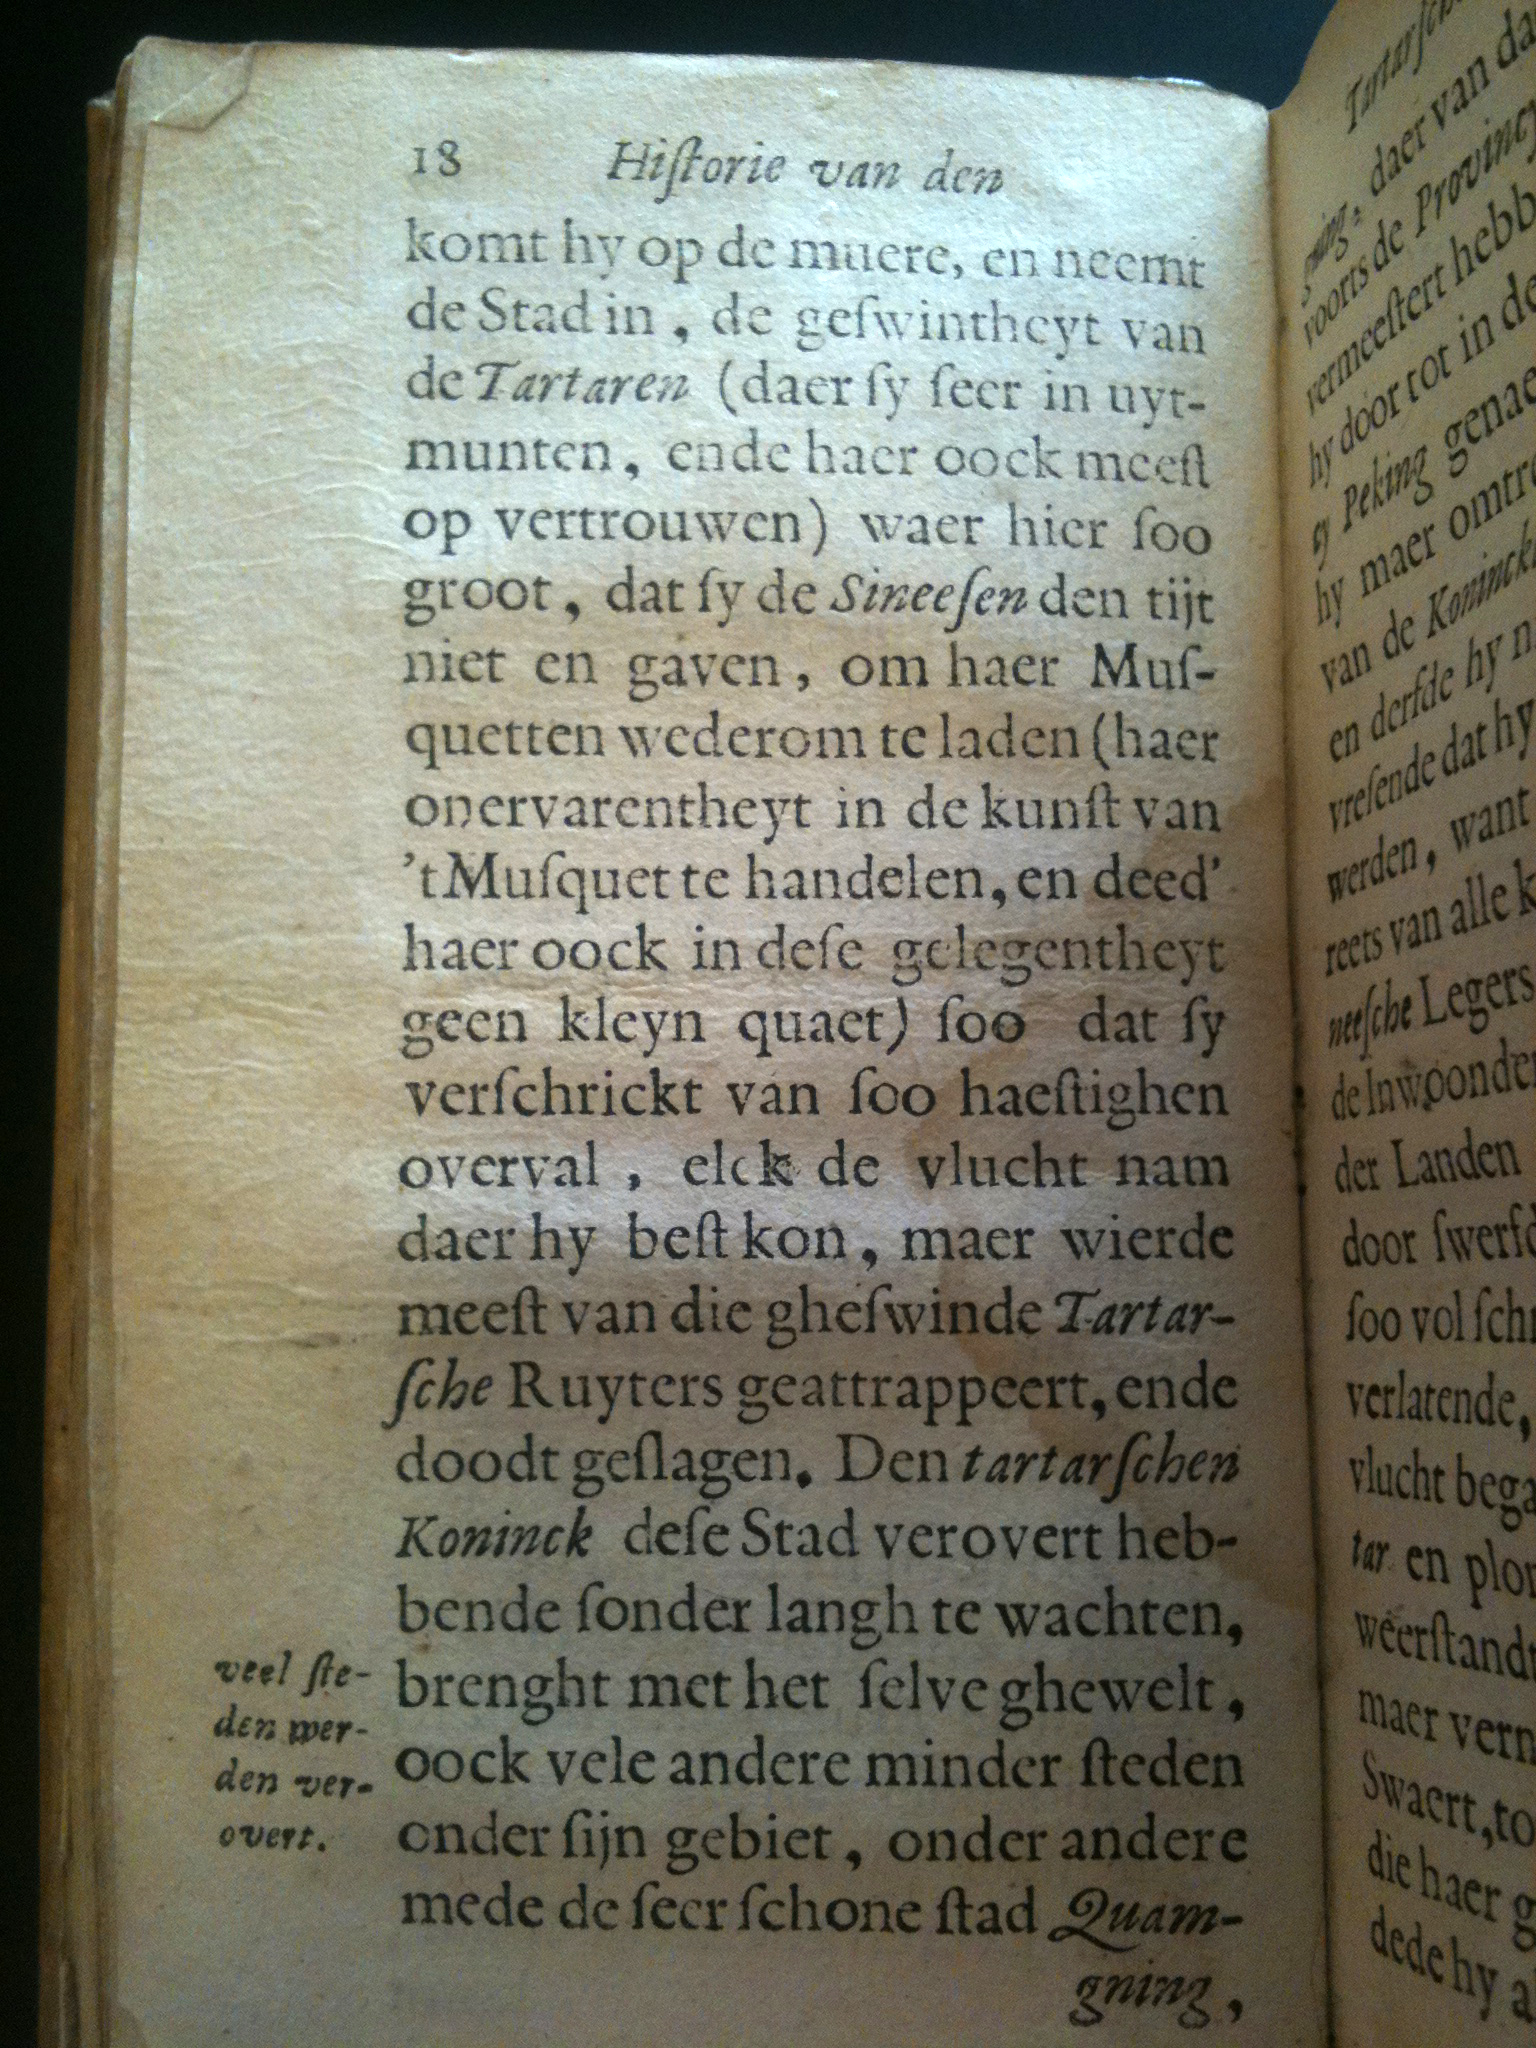 18 Hiſtorie van den
komt hy op de muere, en neemt
de Stad in, de geſwintheyt van
de Tartaren (daer ſy ſeer in uyt-
munten, ende haer oock meeſt
op vertrouwen) waer hier ſoo
groot, dat ſy de Sineeſen den tijt
niet en gaven, om haer Muſ-
quetten wederom te laden (haer
onervarentheyt in de kunſt van
't Muſquet te handelen, en deed'
haer oock in deſe gelegentheyt
geen kleyn quaet) ſoo dat ſy
verſchrickt van ſoo haeſtighen
overval, elck de vlucht nam
daer hy beſt kon, maer wierde
meeſt van die gheſwinde Tartar-
ſche Ruyters geattrappeert, ende
doodt geſlagen. Den tartarſchen
Koninck deſe Stad verovert heb-
bende ſonder langh te wachten,
brenght met het ſelve ghewelt,
oock vele andere minder ſteden
onder ſijn gebiet, onder andere
mede de ſeer ſchone ſtad Quam-
gning,
veel ſte-
den wer-
den ver-
overt.
daer van
voorts de
vermeeſtert
hy door tot in
Peking
hy maer
van de
en derfde hy
vreſende dat hy
werden, want
reets van alle
neeſche Legers
de
der Landen
door
ſoo vol
verlatende,
vlucht
tar en
maer
Swaert,
die haer
dede hy